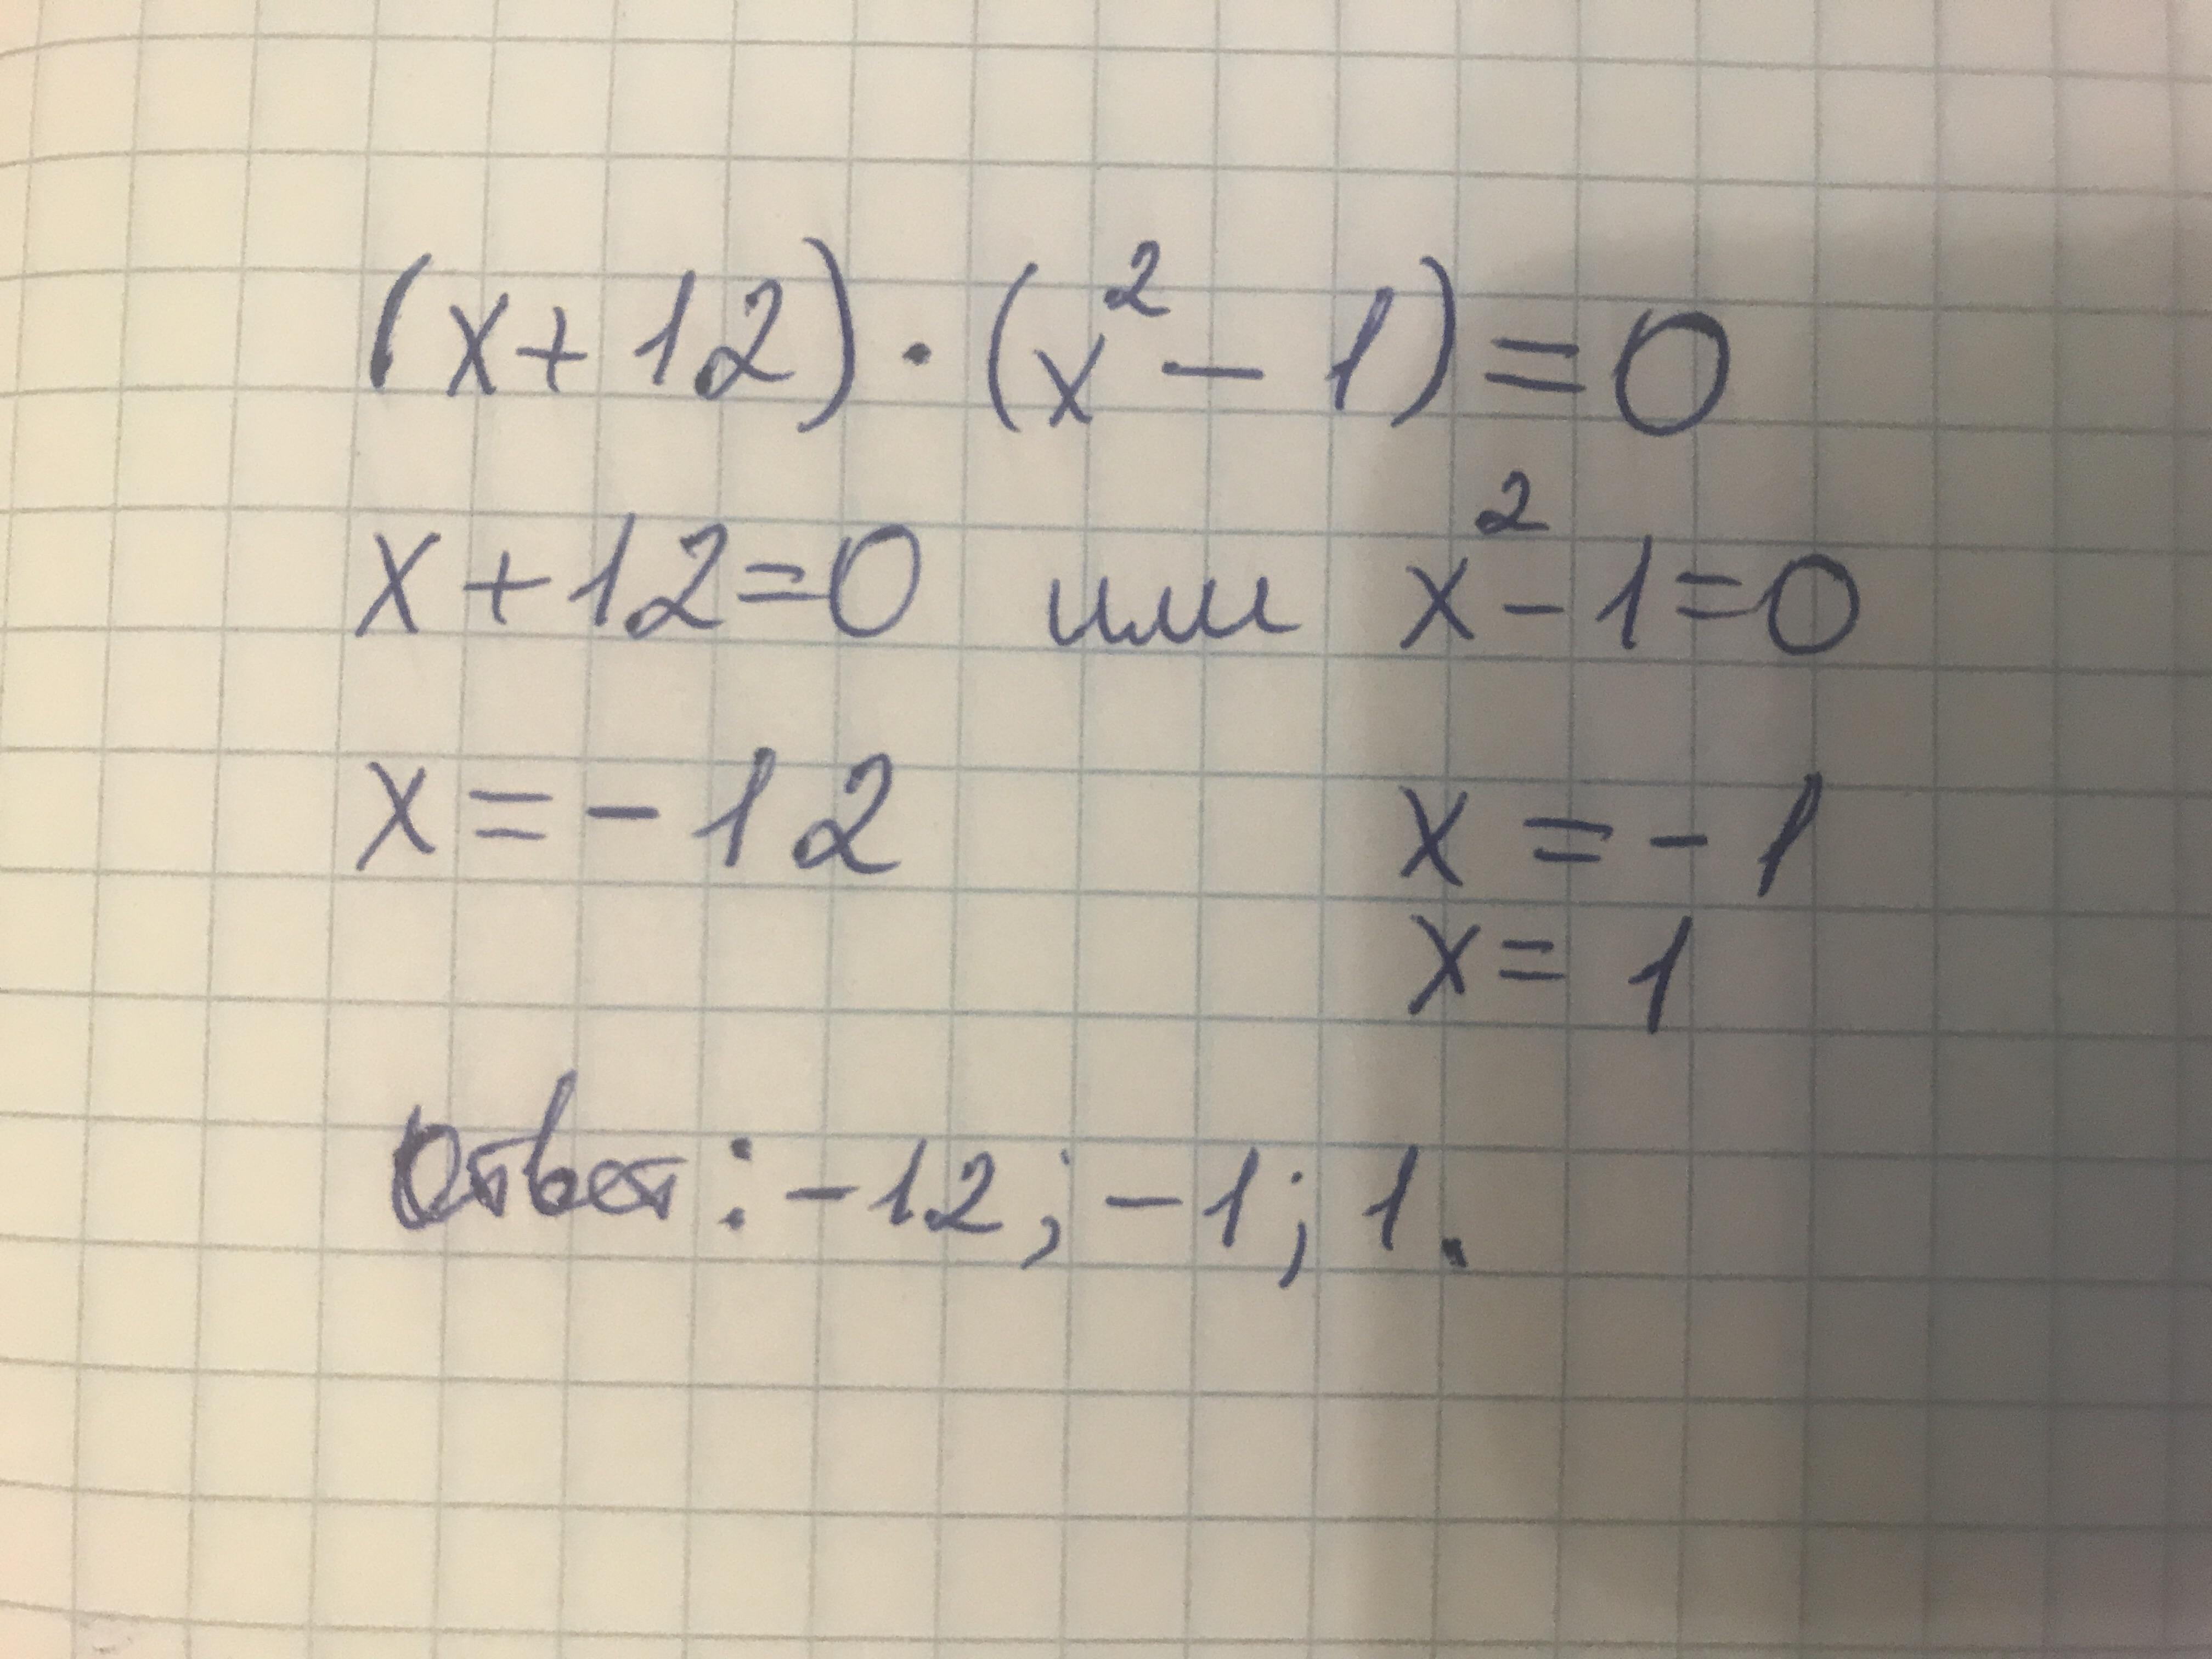 (x+12)·(x²-1)=0
x+12=0 или x²-1=0
x=-12 x=-1
x=1
Ответ: -12; -1; 1.